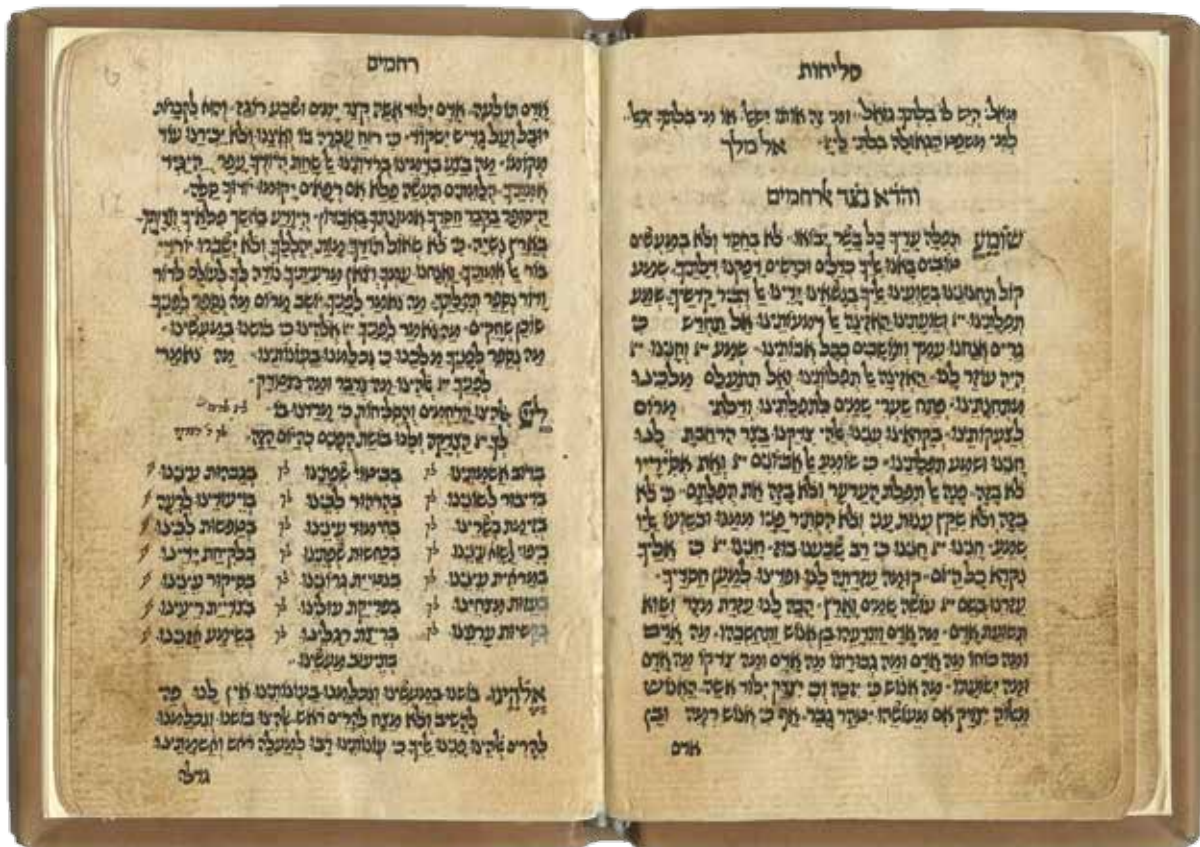 סליחות
גואל היש לו בלתך גואל ומי זה אותו ישאל או מי בלתך יגאל
כי משפט הגאולה בלתי אל מלך
והדא נצד ארחמים
שומע תפלה עדיך כל בשר יבואו לא בחסד ולא במעשים
טובים באנו אליך כדלים וכרשים דפקנו דלתיך שמע
קול תחנונינו בשועינו אליך בנשאינו ידינו אל דביר קדשיך שמע
תפלתינו יי ושועתינו האזינה אל דמעותינו אל תחרש כי
גרים אנחנו עמך ותושבים ככל אבותינו שמע יי וחננו יי
היה עוזר לנו האזינה אל תפלותינו ואל תתעלם מלכינו
מתחנתינו פתח שערי שמים לתפלתינו ודלתי מרום
לצעקותינו בקראינו ענינו אלהי צדקנו בצר הרחבת לנו
חננו ושמע תפלתינו כי שומע אל אביונים יי ואת אסיריו
לא בזה פנה אל תפלת הערער ולא בזה את תפלתם כי לא
בזה ולא שקץ ענות עני ולא הסתיר פניו ממנו ובשועו אליו
שמע חננו יי חננו כי רב שבענו בוז חננו יי כי אליך
נקרא כל היום קומה עזרתה לנו ופדינו למען חסדיך
עזרנו בשם יי עושה שמים וארץ הבה לנו עזרת מצר ושוא
תשועת אדם מה אדם ותדעהו בן אנוש ותחשבהו מה אדם
ומה כוחו מה אדם ומה גבורתו מה אדם ומה צדקו מה אדם
ומה ישועתו מה אנוש כי יזכה וכי יצדק ילוד אשה האנוש
מאלוה יצדק אם מעושהו יטהר גבר אף כי אנוש רמה ובן
אדם
רחמים
אדם תולעה אדם ילוד אשה קצר ימים ושבע רוגז והוא לקברות
יובל ועל גדיש ישקוד כי רוח עברה בו ואיננו ולא יכירנו עוד
מקומו מה בצע בדמינו ברדתינו אל שחת היודך עפר היגיד
אמתך הלמתים תעשה פלא אם רפאים יקומו יודוך סלה
היסופר בקבר חסדך אמונתך באבדון היודע בחשך פלאיך וצדקתך
בארץ נשיה כי לא שאול תודך מות יהללך ולא ישברו יורדי
בור אל אמתך ואנחנו עמך וצאן מרעיתך נודה לך לעולם לדור
ודור נספר תהלתך מה נאמר לפניך יושב מרום מה נספר לפניך
שוכן שחקים מה נאמר לפניך יי אלהינו כי בושנו במעשינו
מה נספר לפניך מלכנו כי נכלמנו בעונותינו מה נאמר
לפניך יי אלהינו מה נדבר ומה נצטדק
אלהינו הרחמים והסליחות כי מרדנו בו
לך יי הצדקה ולנו בושת הפנים כהיום הזה
ברוב אשמתינו לך בביטוי שפתינו לך בגבהות עינינו
בדיבור לשונינו לך בהרהור לבנו לך ביעדינו לרעה
בזימת בשרינו לך בחימוד עינינו לך בטפשות לבינו
ביפוי לשוננו לך בכחשות שפתינו לך בלקיחת ידינו
במראית עינינו לך בנטיית גרונינו לך בסיקור עינינו
בעזות מצחינו לך בפריקת עולינו לך בצריית רעינו
בקשיות ערפינו לך בריצת רגלינו לך בשימע אזנינו
בתיעוב מעשינו
אלהינו בושנו במעשינו ונכלמנו בעונותינו אין לנו פה
להשיב ולא מצח להרים ראש אלהינו בושנו ונכלמנו
להרים אלהינו פנינו אליך כי עונותינו רבו למעלה ראש ואשמתינו
גדלה